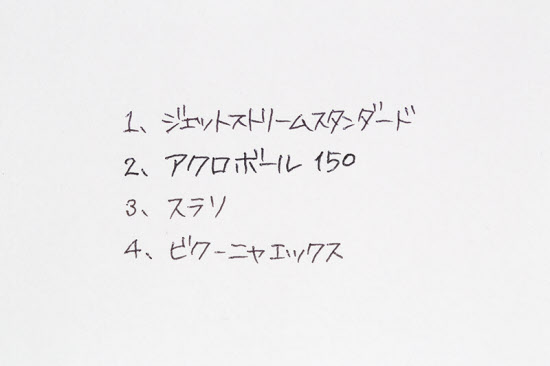 1、ジェットストリームスタンダード
2、アクロボール 150
3、スラリ
4、ビクーニャエックス